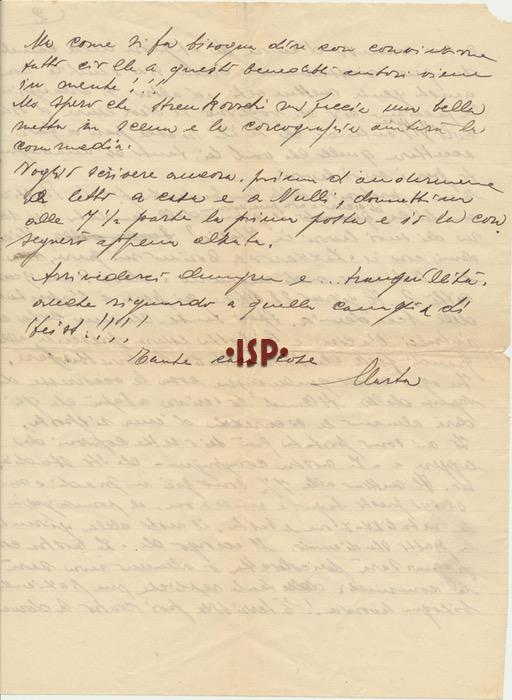 Ma come si fa bisogna dire con convinzione
tutto ciò che a questi benedetti autori viene
in mente!!!
Ma spero che Strenkowski mi faccia una bella
messa in scena e la coreografia aiuterà la
commedia.
Voglio scrivere ancora, prima d'andarmene
a letto a casa e a Nulli, domattina
alle 7½ parte la prima posta e io la con
segnerò appena alzata.
Arrivederci dunque e ... tranquillità.
anche riguardo a quella di
Feist!!!!
Tante cose
Marta
·ISP·